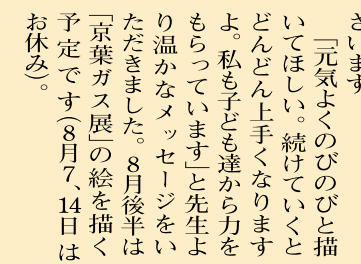 さいます
「元気よくのびのびと描
いてほしい。続けていくと
どんどん上手くなります
よ。私も子ども達から力を
もらっています」と先生よ
り温かなメッセージをい
ただきました。8月後半は
「京葉ガス展」の絵を描く
予定です(8月7、14日は
お休み)。